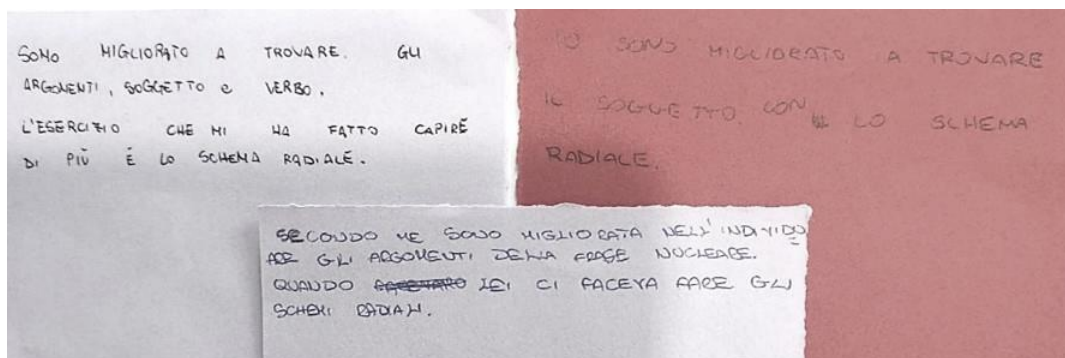 SONO MIGLIORATO A TROVARE. GLI
ARGOMENTI, SOGGETTO e VERBO.
L'ESERCIZIO CHE MI HA FATTO CAPIRE
DI PIÙ É LO SCHEMA RADIALE.
IO SONO MIGLIORATO A TROVARE
IL SOGGETTO. CON LO SCHEMA
RADIALE.
SECONDO ME SONO MIGLIORATA NELL'INDIVIDU
ARE GLI ARGOMENTI DELLA FRASE NUCLEARE.
QUANDO LEI CI FACEVA FARE GLI
SCHEMI RADIALI.